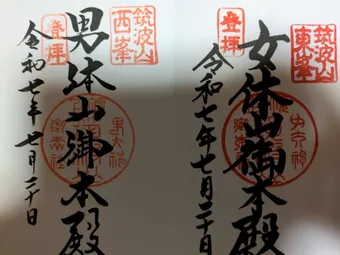 筑波山
東峯
女体山御本殿
登拝
令和七年七月二十日
筑波山
西峯
男体山御本殿
登拝
令和七年七月二十日